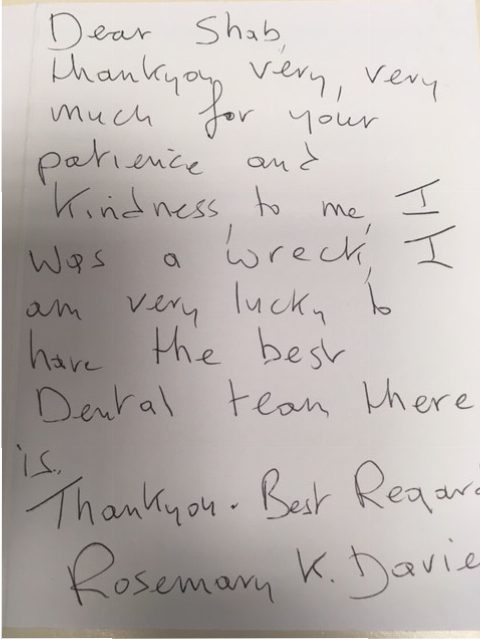 Dear Shab,
thankyou very, very
much for your
patience and
kindness, to me, I
was a 'wreck, I
am very lucky to
have the best
Dental team there
is.
Thankyou. Best Regard
Rosemary K. Davie